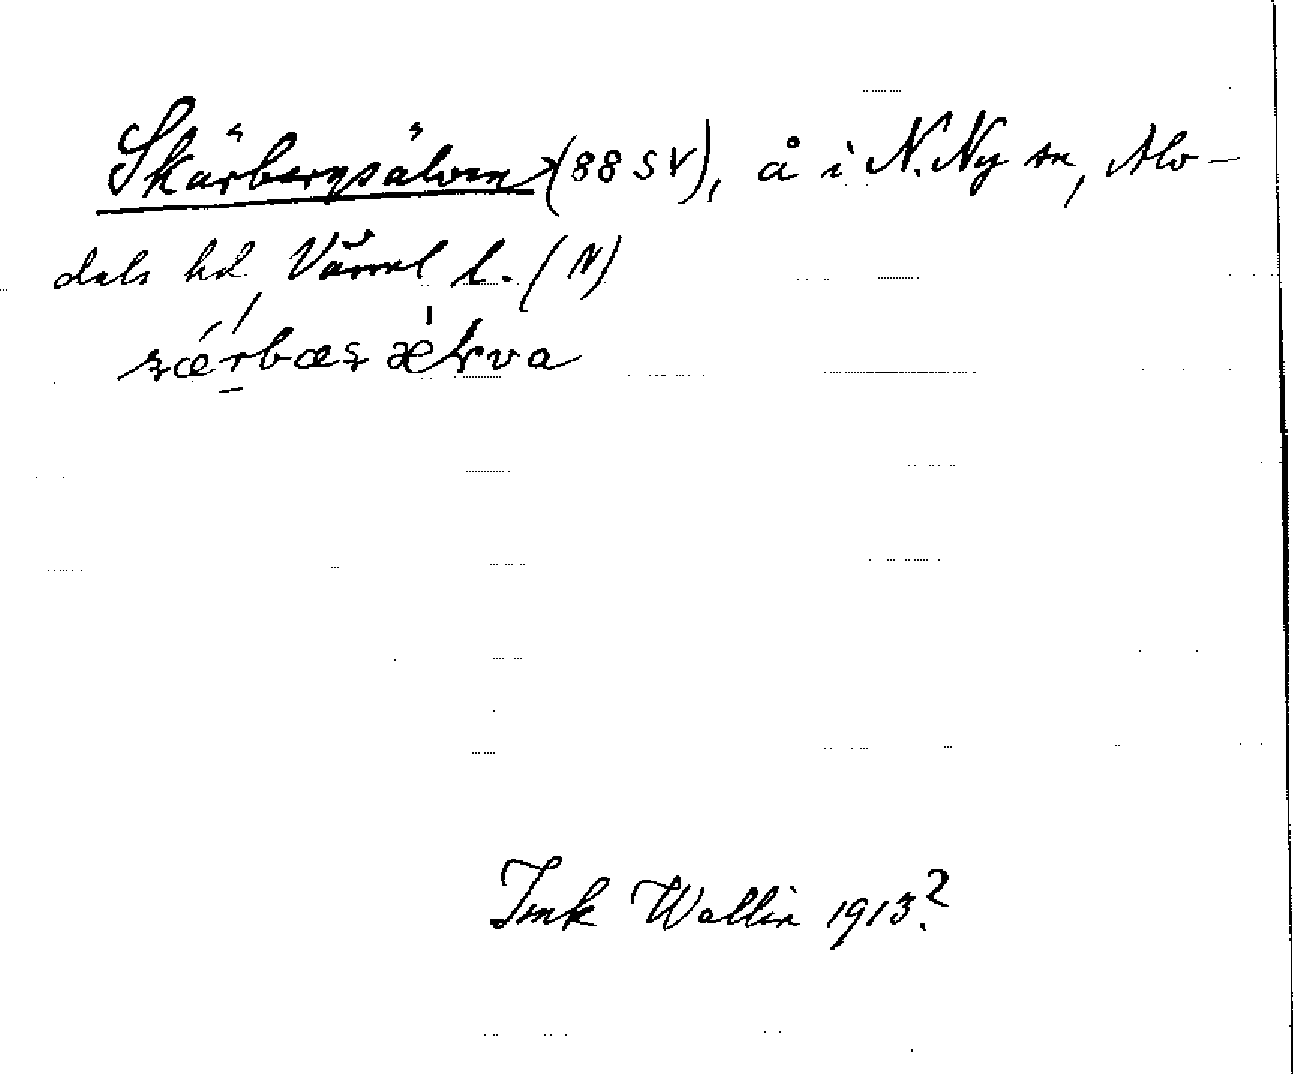 Skärbergsälven (88 SV), å i N. Ny sn, Älv-
dals hd, Värml l. (N)
Ink Wallin 1913?